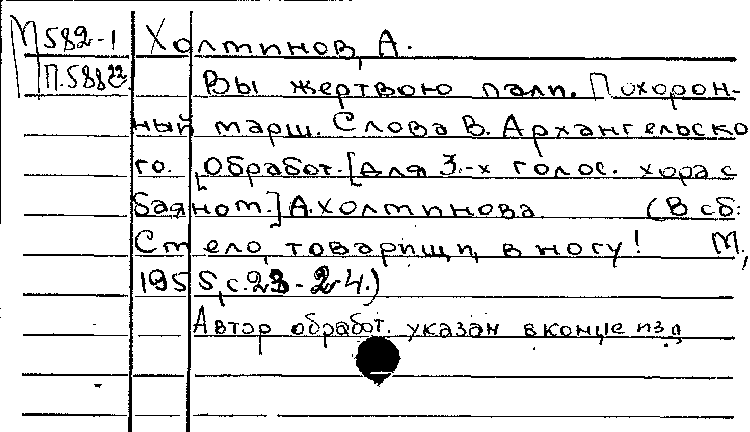 М582-1 Холминов, А.
П.588²² Вы жертвою пали. Похорон-
ный марш. Слова В. Архангельско
го. Обработ. [для 3-х голос. хора с
баяном.] А. Холминова (В сб:
Смело, товарищи, в ногу! М,
1955, с. 23-24.)
Автор обработ. указан в конце изд